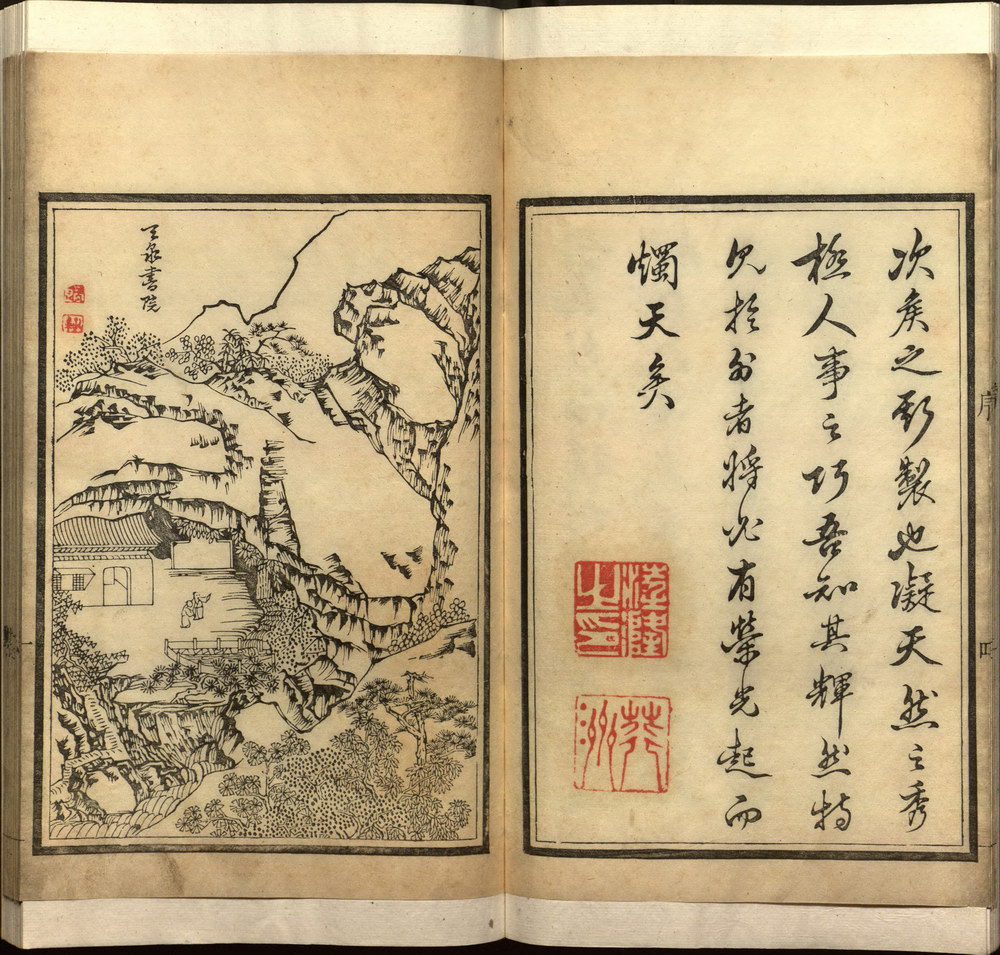 次矦之製也凝天然之秀
極人事之巧吾知其輝然特
見於外者將必有榮光起而
燭天矣
之印
序
四
天泉書院